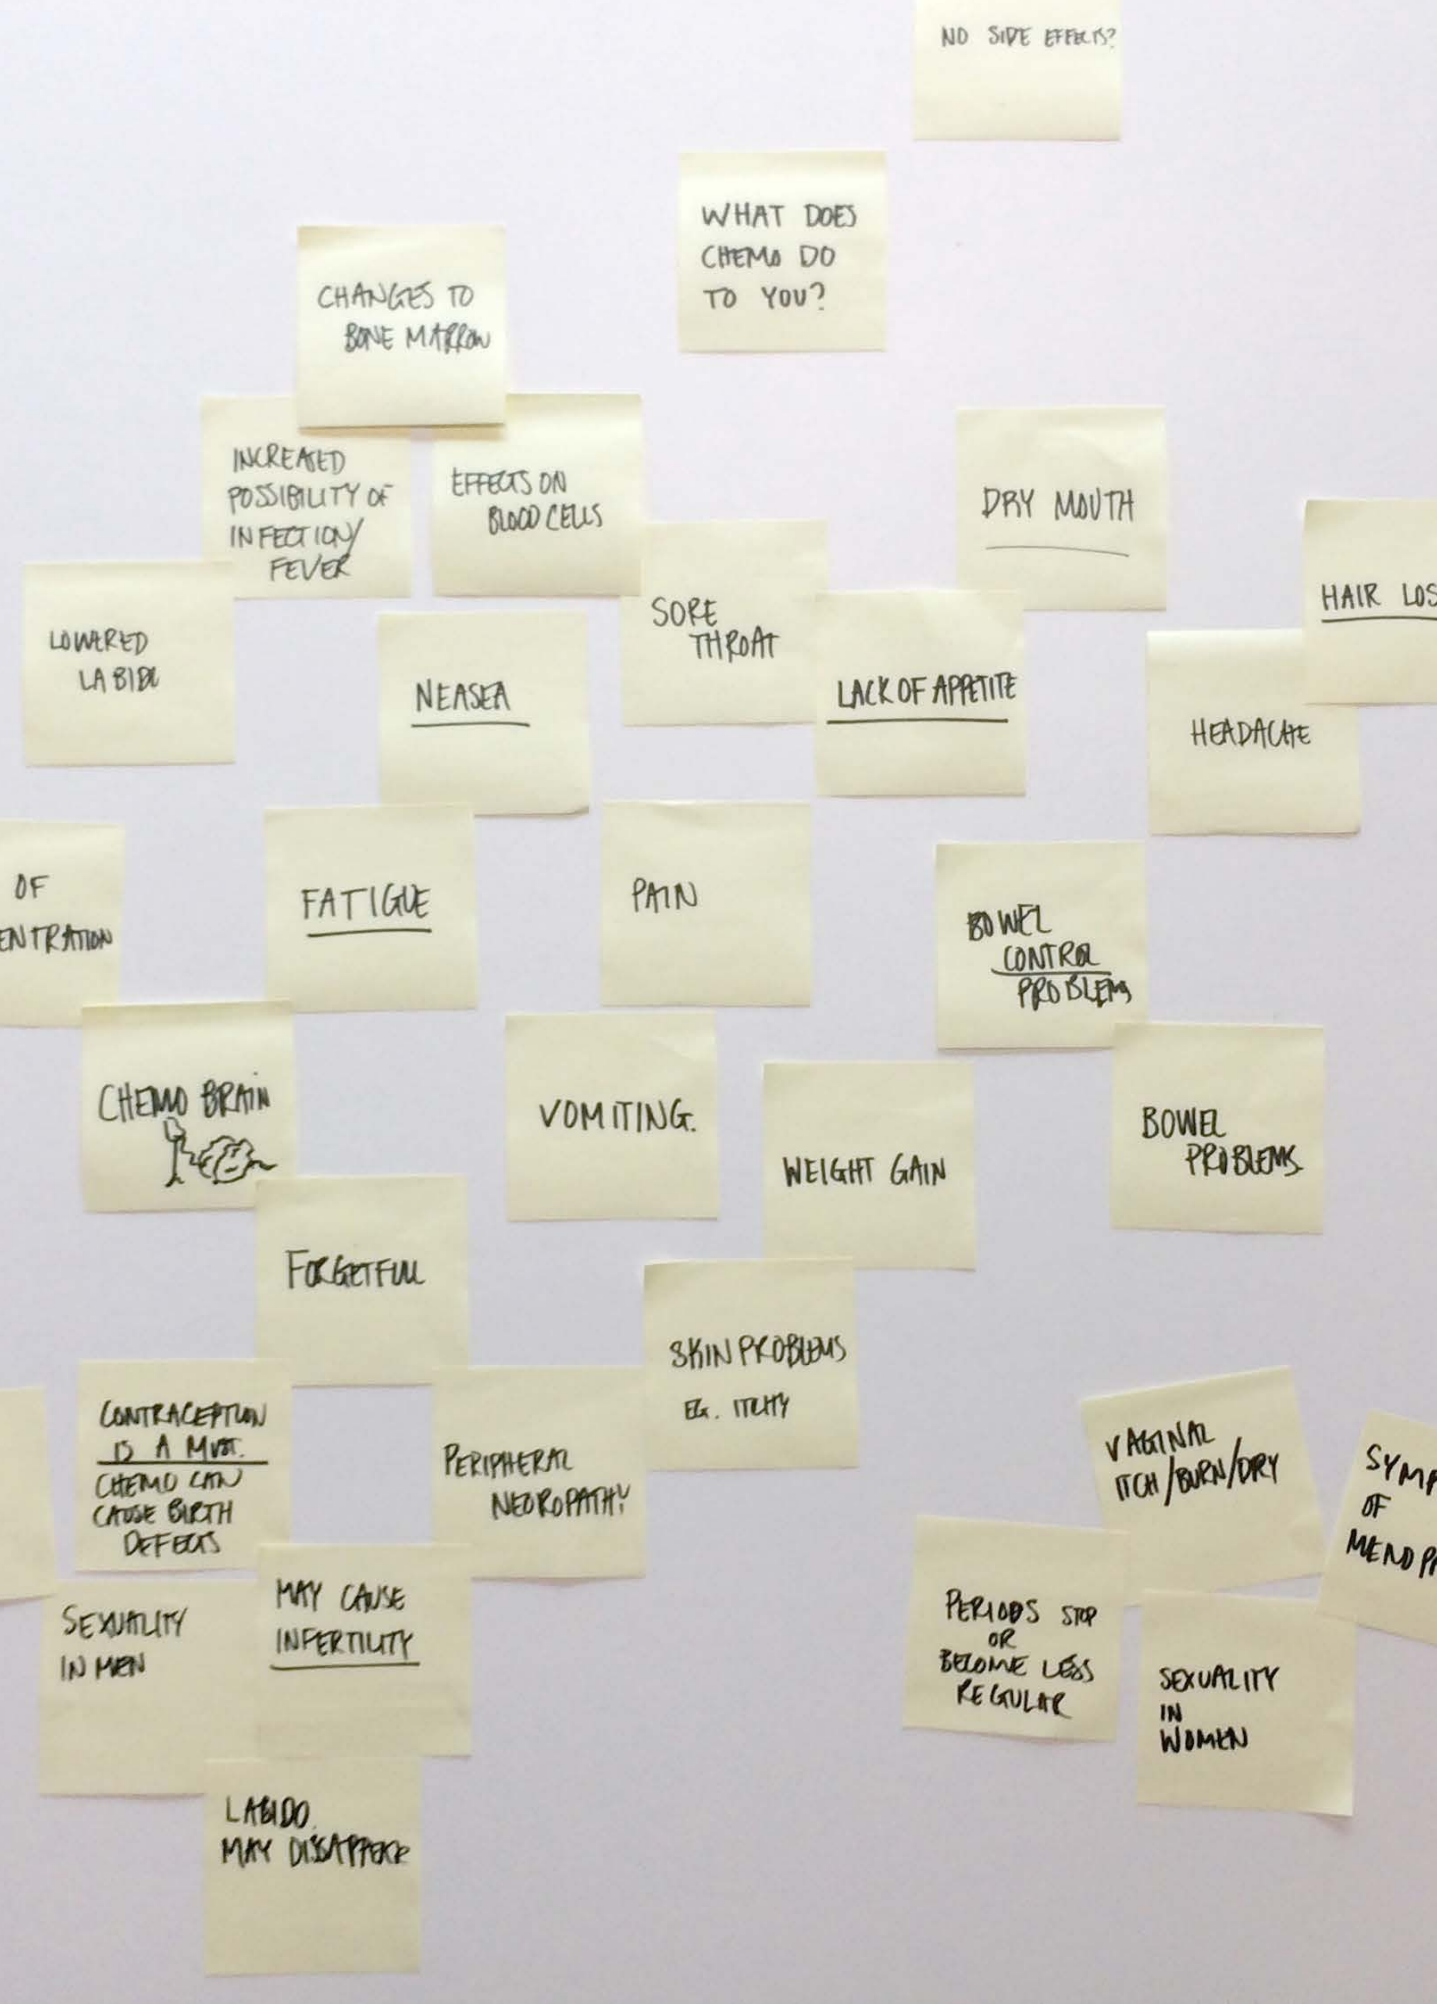 NO SIDE EFFECTS?
WHAT DOES
CHEMO DO
TO YOU?
CHANGES TO
BONE MARROW
INCREASED
POSSIBILITY OF
INFECTION/
FEVER
EFFECTS ON
BLOOD CELLS
DRY MOUTH
HAIR LOS
SORE
THROAT
LOWERED
LABIDO
NEASEA
LACK OF APPETITE
HEADACHE
OF
ENTRATION
FATIGUE
PAIN
BOWEL
CONTROL
PROBLEMS
CHEMO BRAIN
VOMITING.
WEIGHT GAIN
BOWEL
PROBLEMS
FORGETFULL
SKIN PROBLEMS
EG. ITCHY
CONTRACEPTION
IS A MUST.
CHEMO CAN
CAUSE BIRTH
DEFECTS
PERIPHERAL
NEUROPATHY
VAGINAL
ITCH/BURN/DRY
SYMP
OF
MENOPA
SEXUALITY
IN MEN
MAY CAUSE
INFERTILITY
PERIODS STOP
OR
BECOME LESS
REGULAR
SEXUALITY
IN
WOMEN
LABIDO
MAY DISSAPPEAR